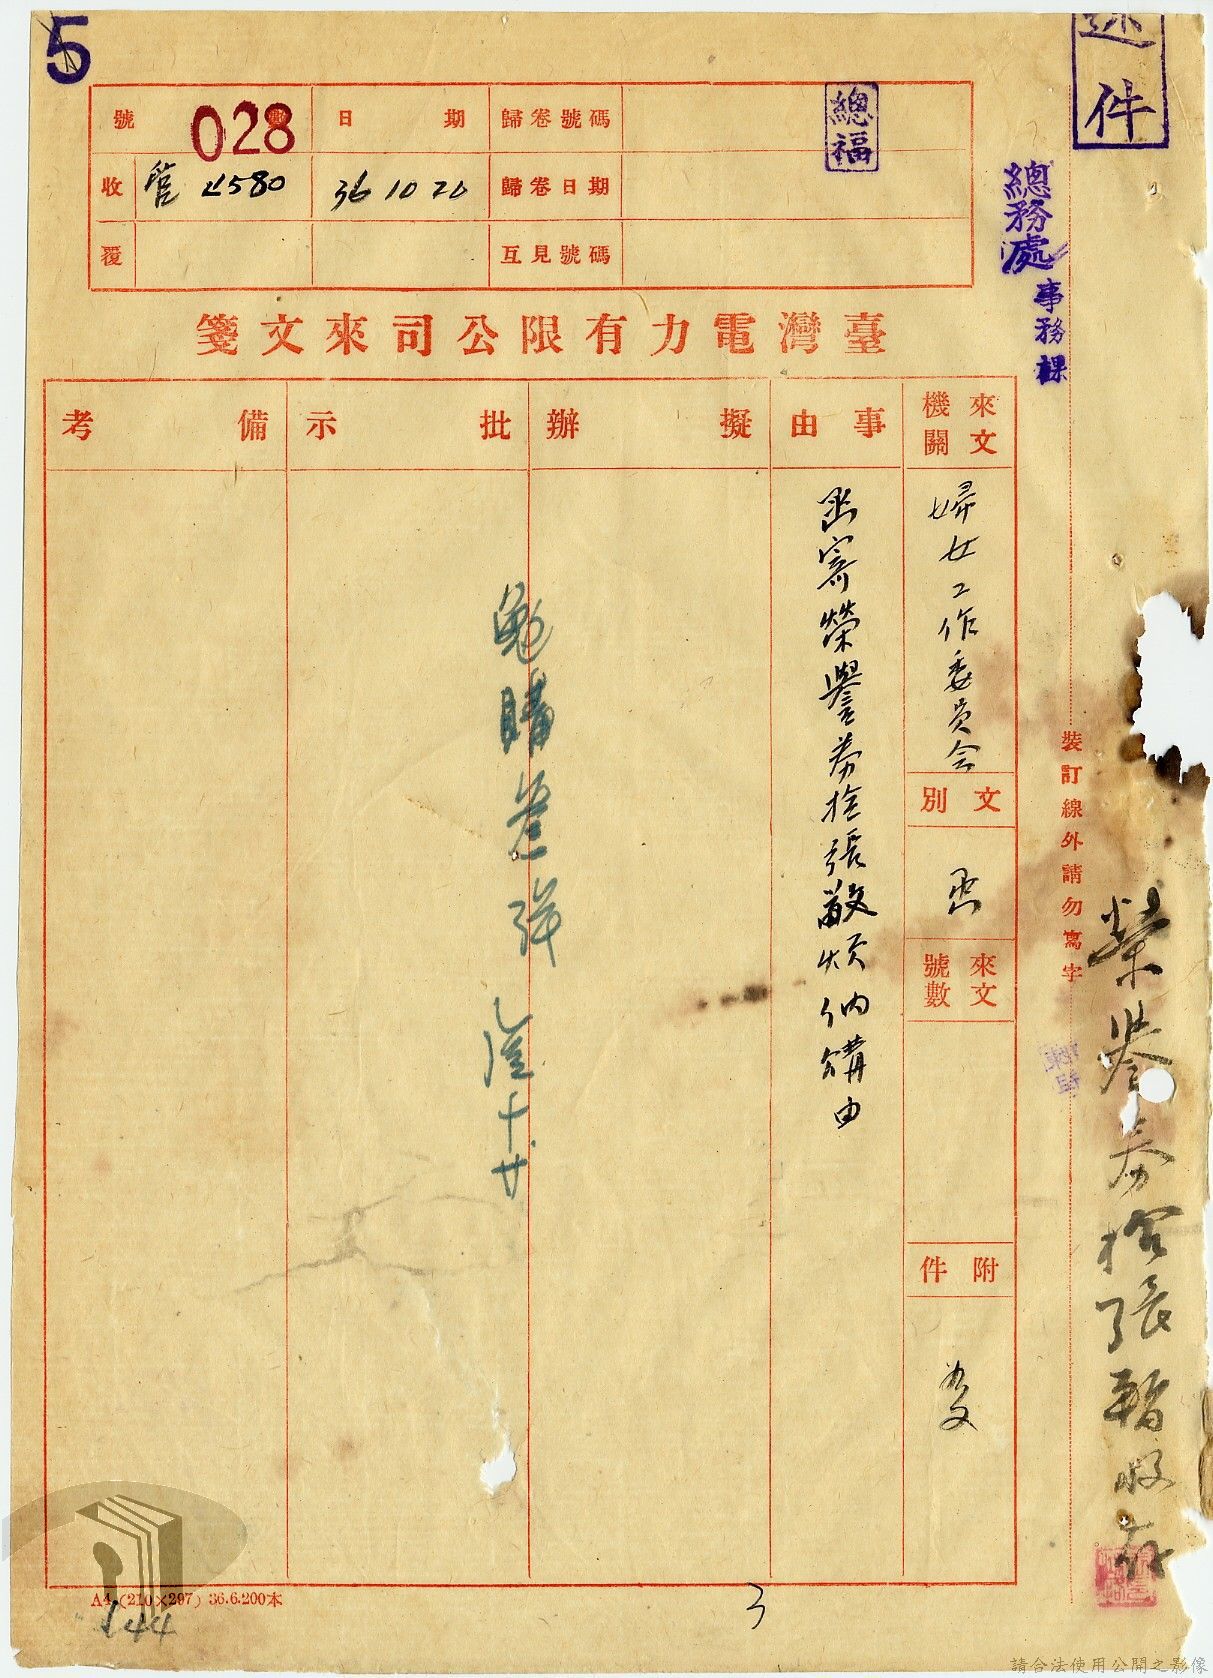 5
速件
總福
總務處
事務課
號
028
日期
歸卷號碼
收
管
4580
36 10 20
歸卷日期
覆
互見號碼
臺灣電力有限公司來文箋
來文機關
婦女工作委員会
文別
函
來文號數
附件
事由
函寄榮譽券拾張敬煩備購由
擬辦
批示
勉購叁張
十廿
備考
裝訂線外請勿寫字
榮譽券拾張暫收存
A4 (210×297) 36.6.200本
144
3
請合法使用公開之影像